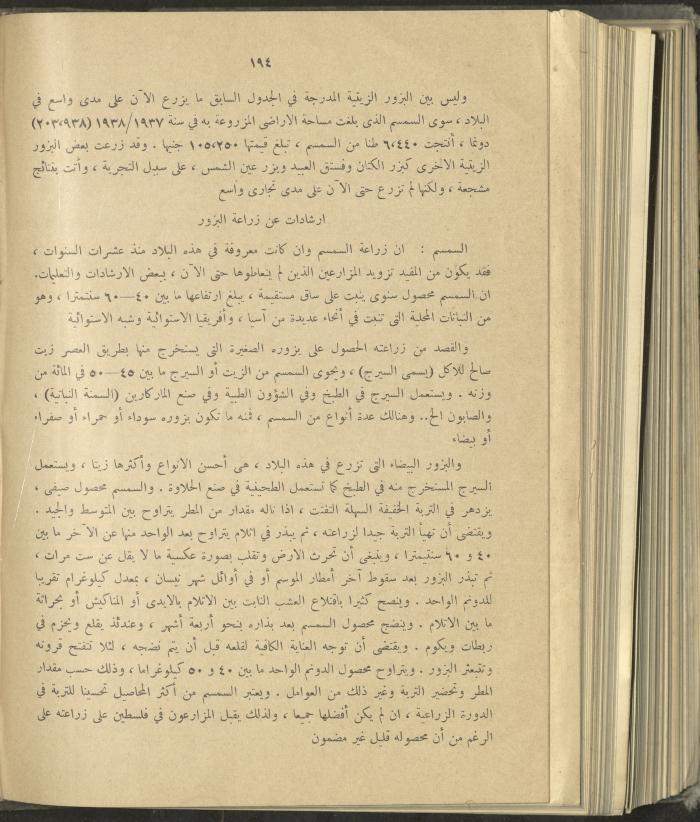 ١٩٤
وليس بين البزور الزيتية المدرجة في الجدول السابق ما يزرع الآن على مدى واسع في
البلاد ، سوى السمسم الذى بلغت مساحة الاراضى المزروعة به في سنة ١٩٣٧/١٩٣٨ (٢٠٣،٩٣٨)
دونما ، أنتجت ٦،٤٤٠ طنا من السمسم ، تبلغ قيمتها ١٠٥،٢٥٠ جنيها . وقد زرعت بعض البزور
الزيتية الاخرى كبزر الكتان وفستق العبيد وبزر عين الشمس ، على سبيل التجربة ، وأتت بنتائج
مشجعة ، ولكنها لم تزرع حتى الآن على مدى تجارى واسع
ارشادات عن زراعة البزور
السمسم : ان زراعة السمسم وان كانت معروفة في هذه البلاد منذ عشرات السنوات ،
فقد يكون من المفيد تزويد المزارعين الذين لم يتعاطوها حتى الآن ، ببعض الارشادات والتعليمات.
ان السمسم محصول سنوى ينبت على ساق مستقيمة ، يبلغ ارتفاعها ما بين ٤٠—٦٠ سنتمترا ، وهو
من النباتات المحلية التى تنبت في أنحاء عديدة من آسيا ، وأفريقيا الاستوائية وشبه الاستوائية
والقصد من زراعته الحصول على بزوره الصغيرة التى يستخرج منها بطريق العصر زيت
صالح للاكل (يسمى السيرج) ، ويحوى السمسم من الزيت أو السيرج ما بين ٤٥—٥٠ في المائة من
وزنه . ويستعمل السيرج في الطبخ وفي الشؤون الطبية وفي صنع الماركارين (السمنة النباتية) ،
والصابون الخ.. وهنالك عدة أنواع من السمسم ، فمنه ما تكون بزوره سوداء أو حمراء أو صفراء
أو بيضاء
والبزور البيضاء التى تزرع في هذه البلاد ، هى أحسن الانواع وأكثرها زيتا ، ويستعمل
السيرج المستخرج منه في الطبخ كما تستعمل الطحينية في صنع الحلاوة . والسمسم محصول صيفى ،
يزدهر في التربة الخفيفة السهلة التفتت ، اذا ناله مقدار من المطر يتراوح بين المتوسط والجيد .
ويقتضى أن تهيأ التربة جيدا لزراعته ، ثم يبذر في اتلام يتراوح بعد الواحد منها عن الآخر ما بين
٤٠ و ٦٠ سنتيمترا ، وينبغى أن تحرث الارض وتقلب بصورة عكسية ما لا يقل عن ست مرات ،
ثم تبذر البزور بعد سقوط آخر أمطار الموسم أو في أوائل شهر نيسان ، بمعدل كيلوغرام تقريبا
للدونم الواحد . وينصح كثيرا باقتلاع العشب النابت بين الاتلام بالايدى أو المناكيش أو بحراثة
ما بين الاتلام . وينضج محصول السمسم بعد بذاره بنحو أربعة أشهر ، وعندئذ يقلع ويحزم في
ربطات ويكوم . ويقتضى أن توجه العناية الكافية لقلعه قبل أن يتم نضجه ، لئلا تتفتح قرونه
وتتبعثر البزور . ويتراوح محصول الدونم الواحد ما بين ٤٠ و ٥٠ كيلوغراما ، وذلك حسب مقدار
المطر وتحضير التربة وغير ذلك من العوامل . ويعتبر السمسم من أكثر المحاصيل تحسينا للتربة في
الدورة الزراعية ، ان لم يكن أفضلها جميعا ، ولذلك يقبل المزارعون في فلسطين على زراعته على
الرغم من أن محصوله قليل غير مضمون